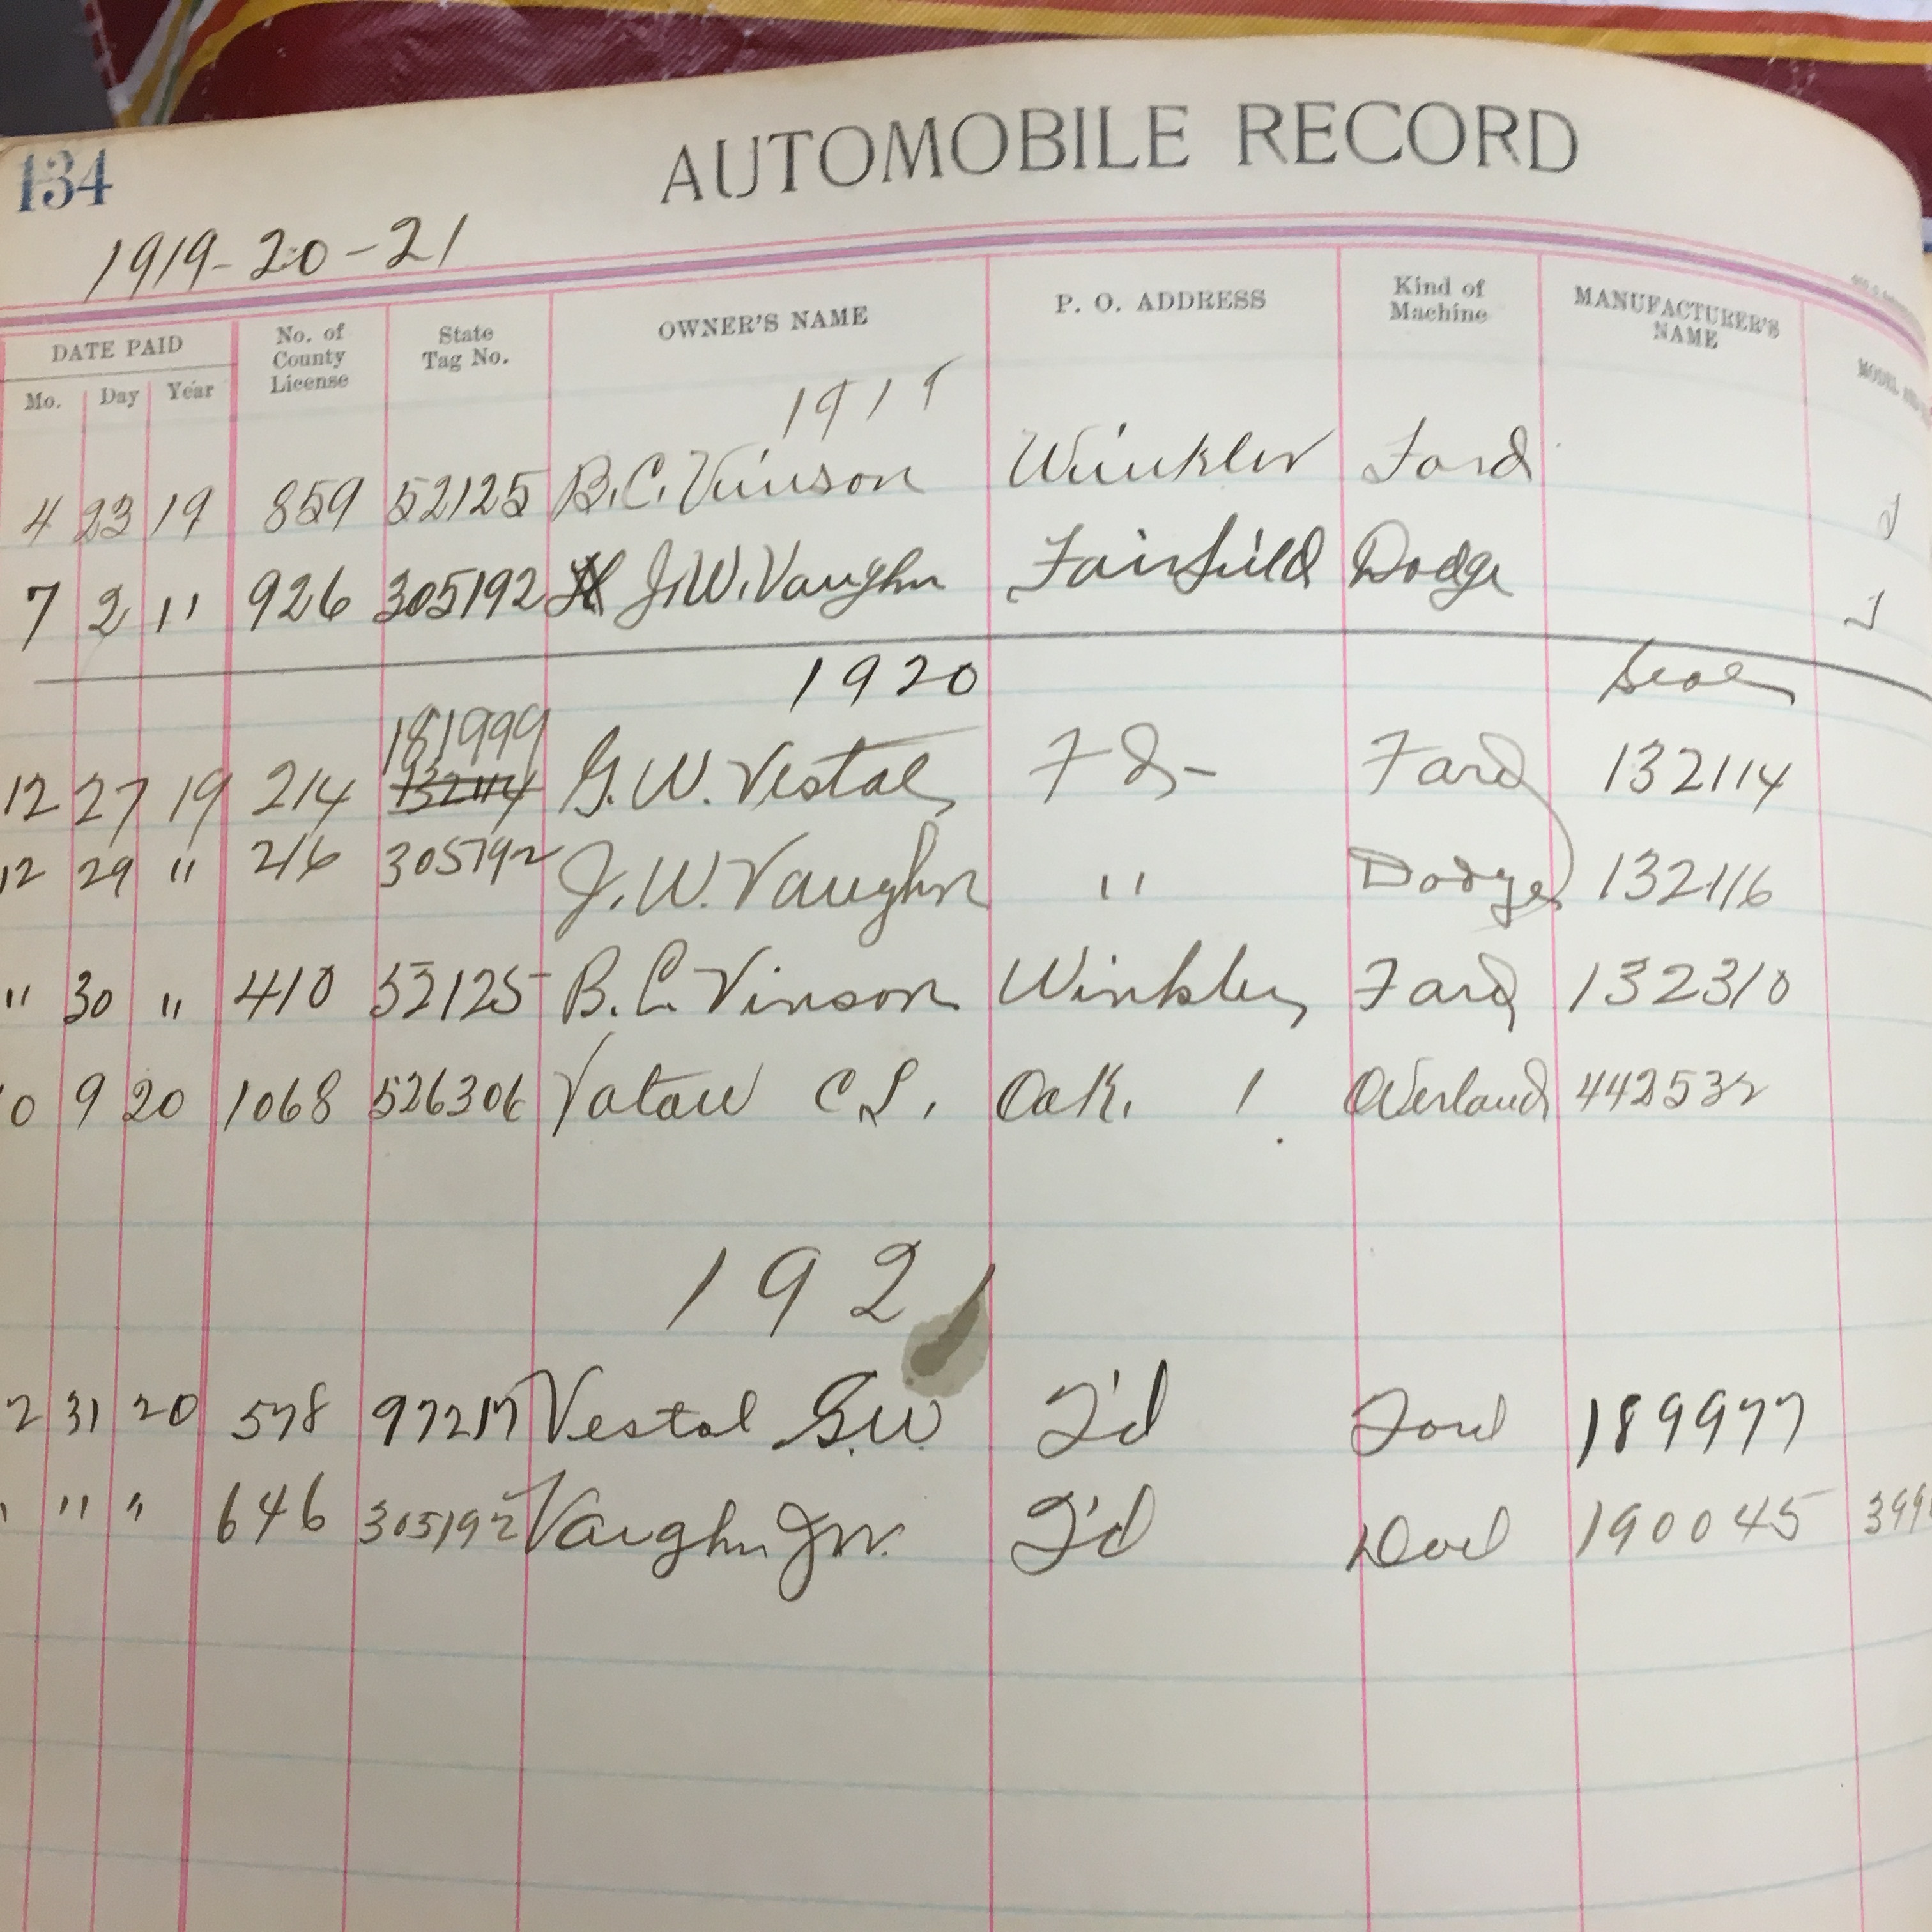 134
AUTOMOBILE RECORD
1919-20-21
DATE PAID No. of County License State Tag No. OWNER'S NAME P. O. ADDRESS Kind of Machine MANUFACTURER'S NAME
Mo. Day Year
1919
4 23 19 859 52125 B.C. Vinson Winkler Ford
7 2 " 926 305192 J.W. Vaughn Fairfield Dodge
1920 Seal
181999
12 27 19 214 132114 G.W. Vestal Fd- Ford 132114
12 29 " 216 305192 J.W. Vaughn " Dodge 132116
" 30 " 410 52125 B.C. Vinson Winkler Ford 132310
0 9 20 1068 526306 Votaw C.L. Oak. Overland 442532
1921
2 31 20 578 97217 Vestal G.W. F'd Ford 189977
" " " 646 305192 Vaughn J.W. F'd Dod 190045 399